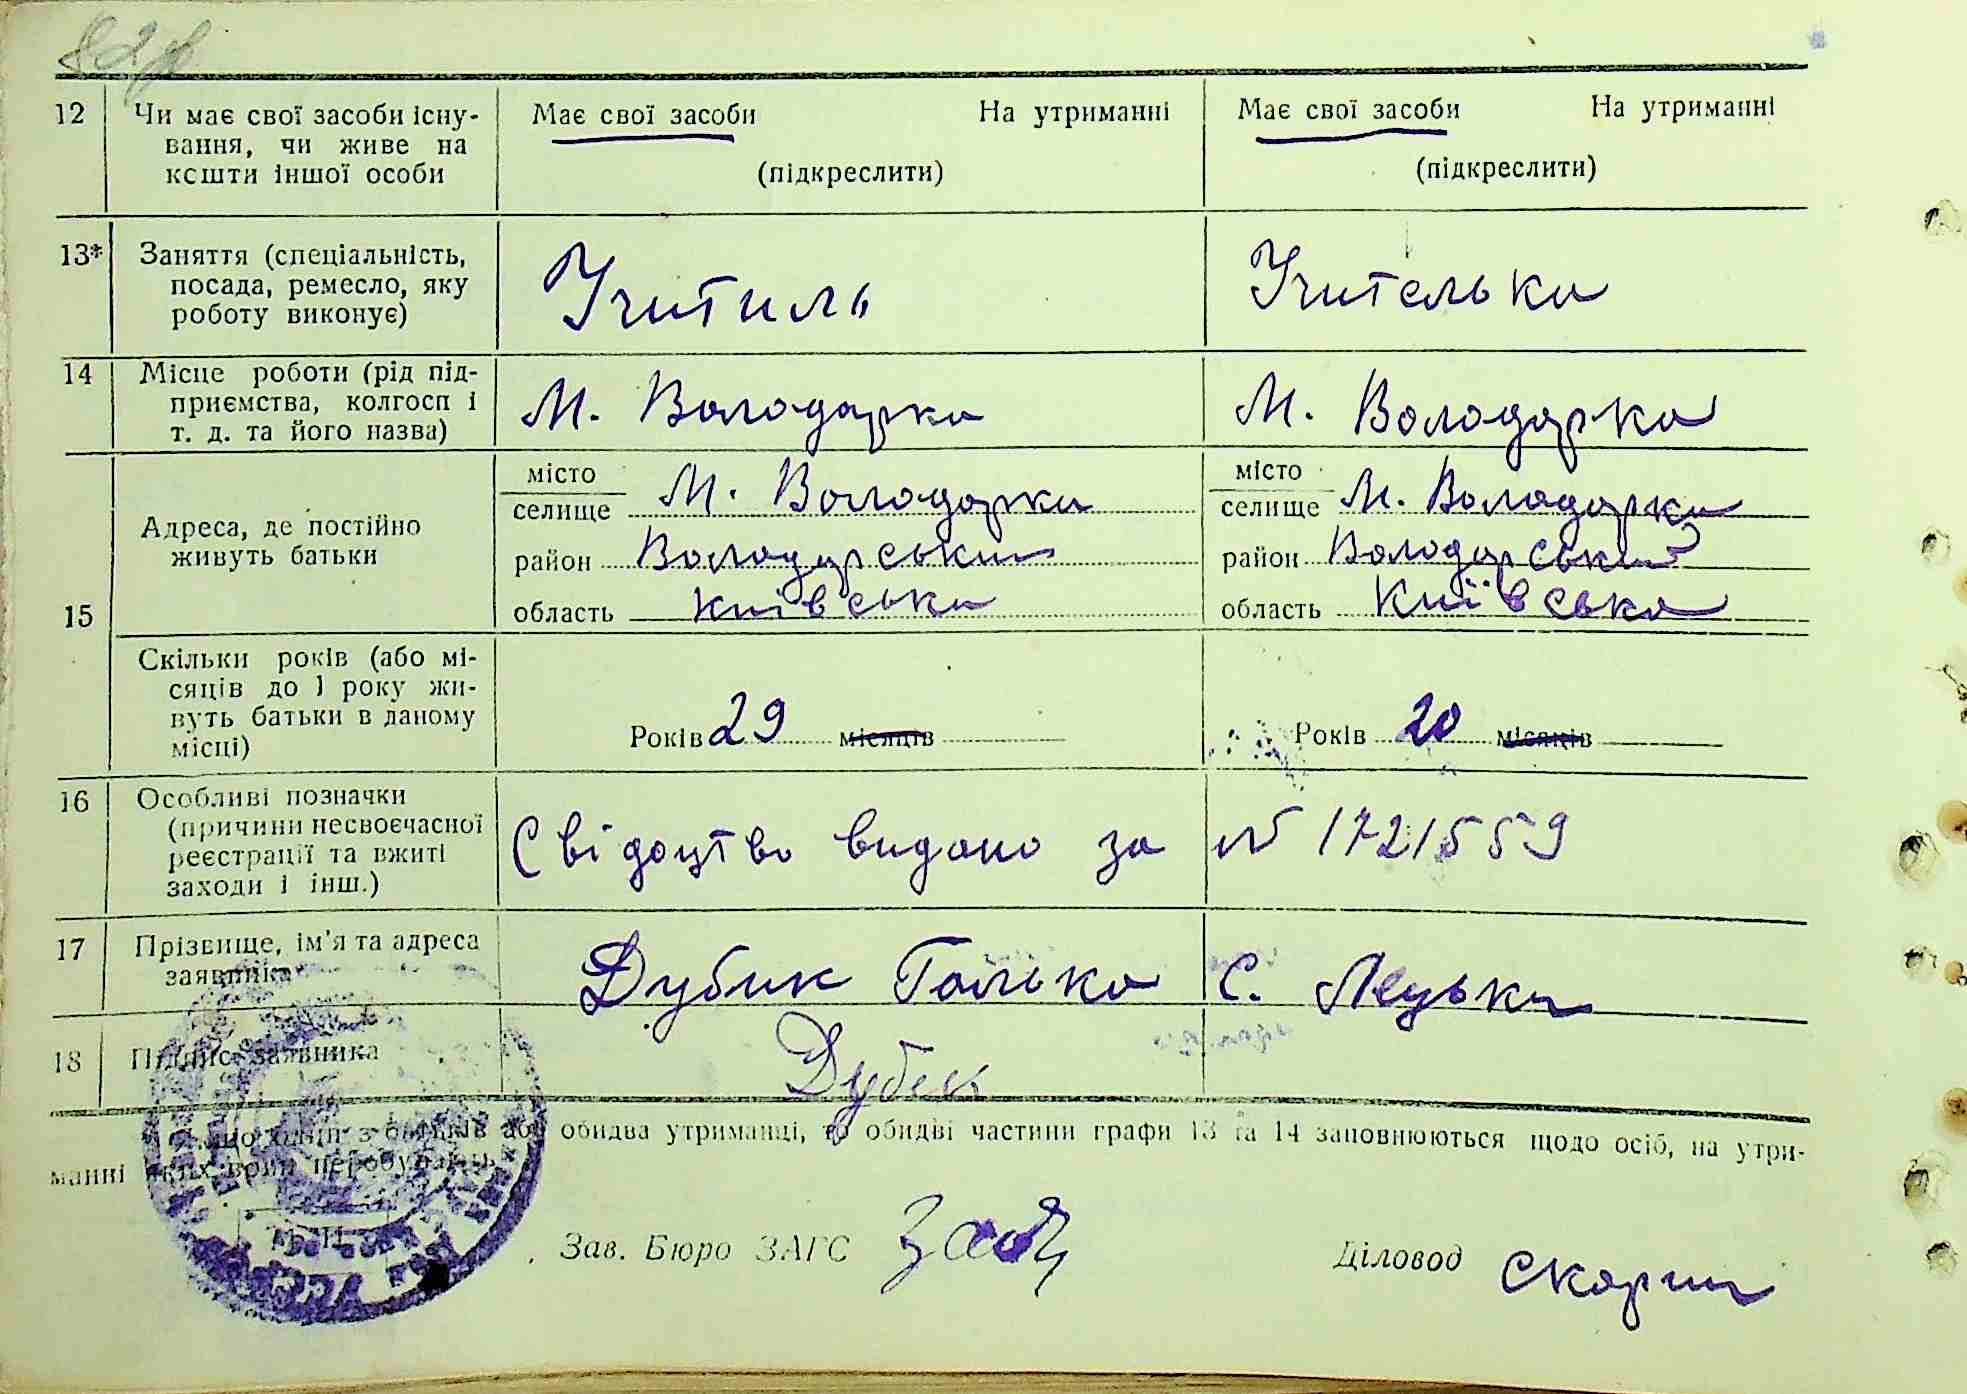 12 Чи має свої засоби існу- Має свої засоби На утриманні Має свої засоби На утриманні
вання, чи живе на
кошти іншої особи (підкреслити) (підкреслити)
13* Заняття (спеціальність,
посада, ремесло, яку Учитиль Учителька
роботу виконує)
14 Місце роботи (рід під-
приємства, колгосп і М. Володарка М. Володарка
т. д. та його назва)
місто місто
селище М. Володарка селище М. Володарка
Адреса, де постійно
живуть батьки район Володарський район Володарський
15 область Київська область Київська
Скільки років (або мі-
сяців до 1 року жи-
вуть батьки в даному
місці) Років 29 місяців Років 20 місяців
16 Особливі позначки
(причини несвоєчасної
реєстрації та вжиті Свідоцтво видано за № 1721559
заходи і інш.)
17 Прізвище, ім'я та адреса
заявника Дубик Галька С. Лецьки
18 Підпис заявника Дубик
обидва утриманці, то обидві частини графи 13 та 14 заповнюються щодо осіб, на утри-
манні яких вони перебувають
Зав. Бюро ЗАГС Діловод